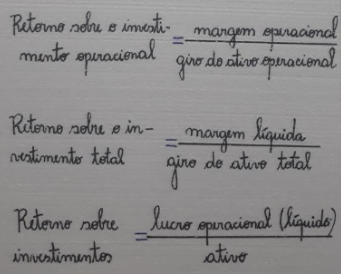 Retorno sobre o investi-
mento operacional = margem operacional
giro do ativo operacional
Retorno sobre o in-
vestimento total = margem líquida
giro do ativo total
Retorno sobre
investimentos = lucro operacional (líquido)
ativo